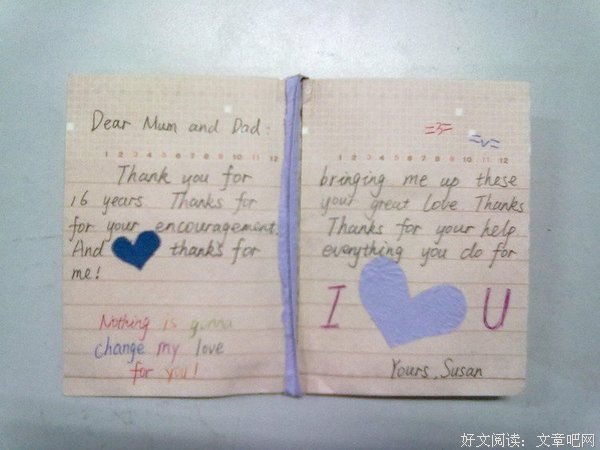 Dear Mum and Dad:
=3=
=v=
1 2 3 4 5 6 7 8 9 10 11 12
1 2 3 4 5 6 7 8 9 10 11 12
Thank you for bringing me up these
16 years Thanks for your great love Thanks
for your encouragement. Thanks for your help
And thanks for everything you do for
me!
I U
Nothing is gonna
change my love
for you!
Yours, Susan
好文阅读：文章吧网